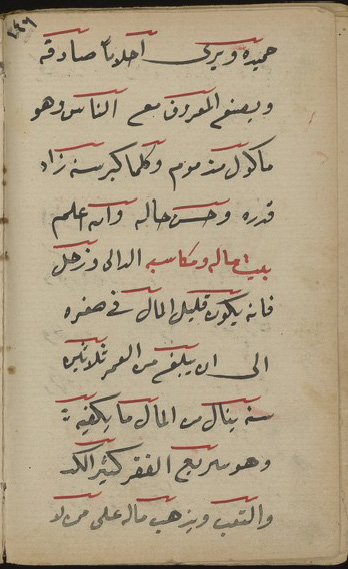 ١٤٩
حميده ويرى احلاما صادقه
ويصنع المعروف مع الناس وهو
ماكول مذموم وكلما كبر سنه زاد
قدره وحسن حاله والله اعلم
بيت ماله ومكاسبه الدالى وزحل
فانه يكون قليل المال فى صغره
الى ان يبلغ من العمر ثلاثين
سنه ينال من المال ما يكفيه
وهو سريع الفقر كثير الكد
والتعب ويذهب ماله على من لا